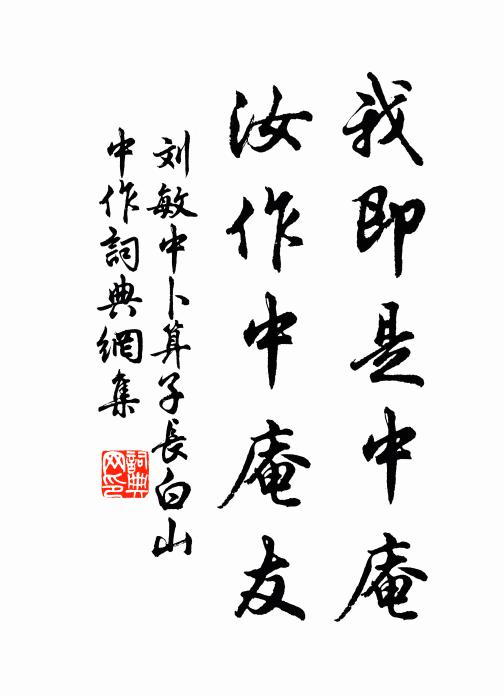 我即是中庵
汝作中庵友
刘敏中卜算子長白山
中作詞典網集
詞典网印